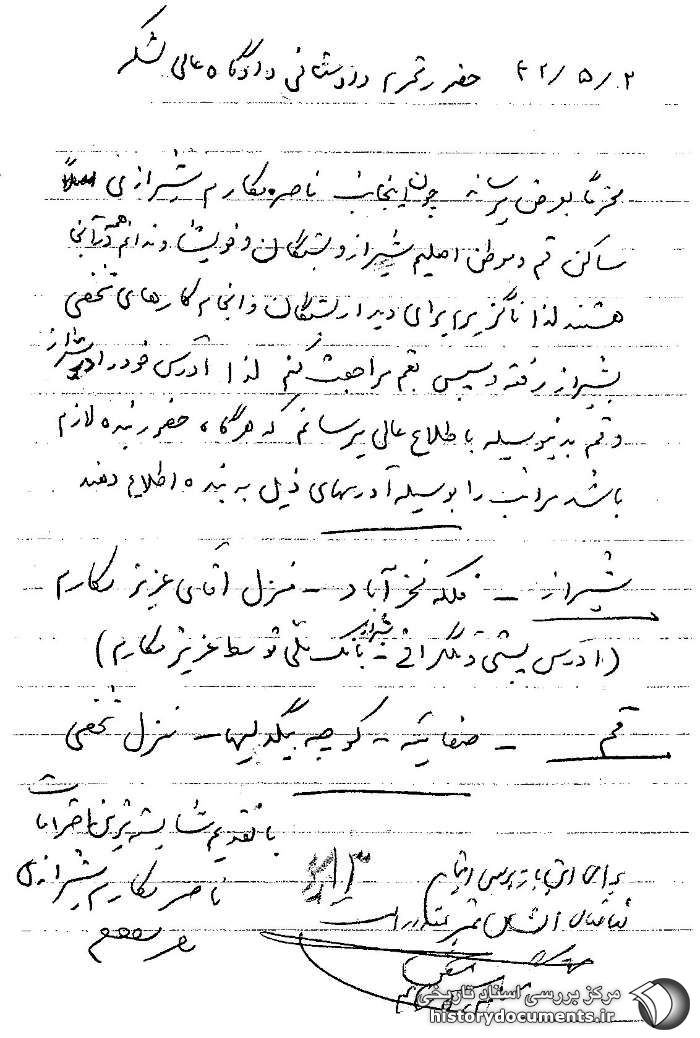 ۴۲/۵/۲ حضور محترم دادستانی دادگاه عالی لشکر
محترماً بعرض میرساند چون اینجانب ناصر مکارم شیرازی
ساکن قم و موطن اصلیم شیراز و بستگان و خویشاوندانم همه در آنجا
هستند لذا ناگزیرم برای دیدار بستگان و انجام کارهای شخصی
بشیراز رفته و سپس بقم مراجعت کنم لذا آدرس خود را در شیراز
و قم بدینوسیله باطلاع عالی میرسانم که هرگاه حضور بنده لازم
باشد مراتب را بوسیله آدرسهای ذیل به بنده اطلاع دهند
شیراز - فلکه نجف آباد - منزل آقای عزیز مکارم
(آدرس پستی و تلگرافی - بانک ملی شیراز توسط عزیز مکارم)
قم - صفائیه - کوچه بیگدلیها - منزل شخصی
با تقدیم شایسته ترین احترامات
ناصر مکارم شیرازی
برای این بازپرسی
مرکز بررسی اسناد تاریخی
historydocuments.ir